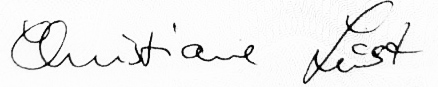 Christiane Lüst